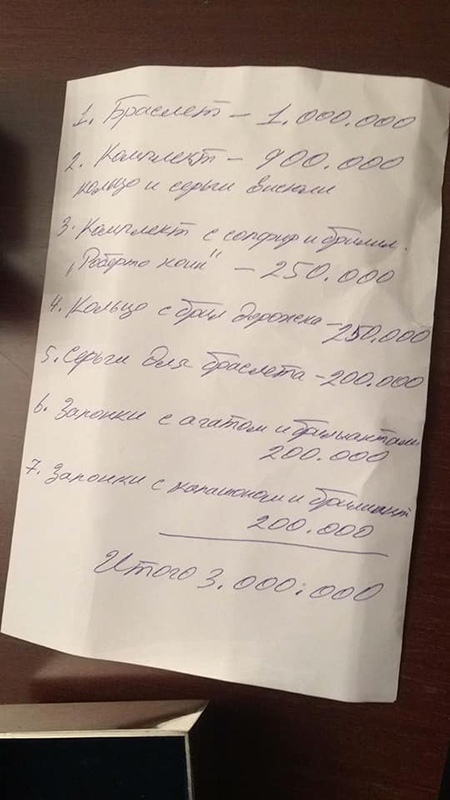 1. Браслет – 1.000.000
2. Комплект – 900.000
кольцо и серьги висюли
3. Комплект с сапфир и брилл.
"Роберто коин" – 250.000
4. Кольцо с брил дорожка – 250.000
5. Серьги для браслета – 200.000
6. Запонки с агатом и брильянтами
200.000
7. Запонки с и брильянт
200.000
Итого 3.000.000